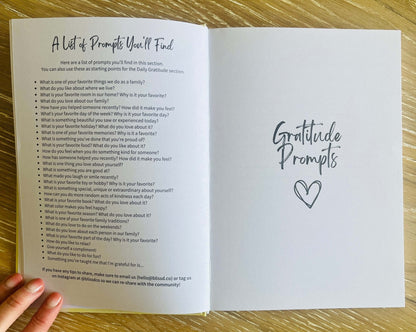 A List of Prompts You'll Find
Here are a list of prompts you'll find in this section.
You can also use these as starting points for the Daily Gratitude section.
What is one of your favorite things we do as a family?
What do you like about where we live?
What is your favorite room in our home? Why is it your favorite?
What do you love about our family?
How have you helped someone recently? How did it make you feel?
What's your favorite day of the week? Why is it your favorite day?
What is something beautiful you saw or experienced today?
What is your favorite holiday? What do you love about it?
What is one of your favorite memories? Why is it a favorite?
What is something you've done that you're proud of?
What is your favorite food? What do you like about it?
How do you feel when you do something kind for someone?
How has someone helped you recently? How did it make you feel?
What is one thing you love about yourself?
What is something you are good at?
What made you laugh or smile recently?
What is your favorite toy or hobby? Why is it your favorite?
What is something special, unique or extraordinary about yourself?
How can you do more random acts of kindness each day?
What is your favorite book? What do you love about it?
What color makes you feel happy?
What is your favorite season? What do you love about it?
What is one of your favorite family traditions?
What do you love to do on the weekends?
What do you love about each person in our family?
What is your favorite part of the day? Why is it your favorite?
How do you like to relax?
Give yourself a compliment!
What do you love to do for fun?
Something you've taught me that I'm grateful for is...
If you have any tips to share, make sure to email us (hello@blissd.co) or tag us
on Instagram at @blissdco so we can re-share with the community!
Gratitude
Prompts